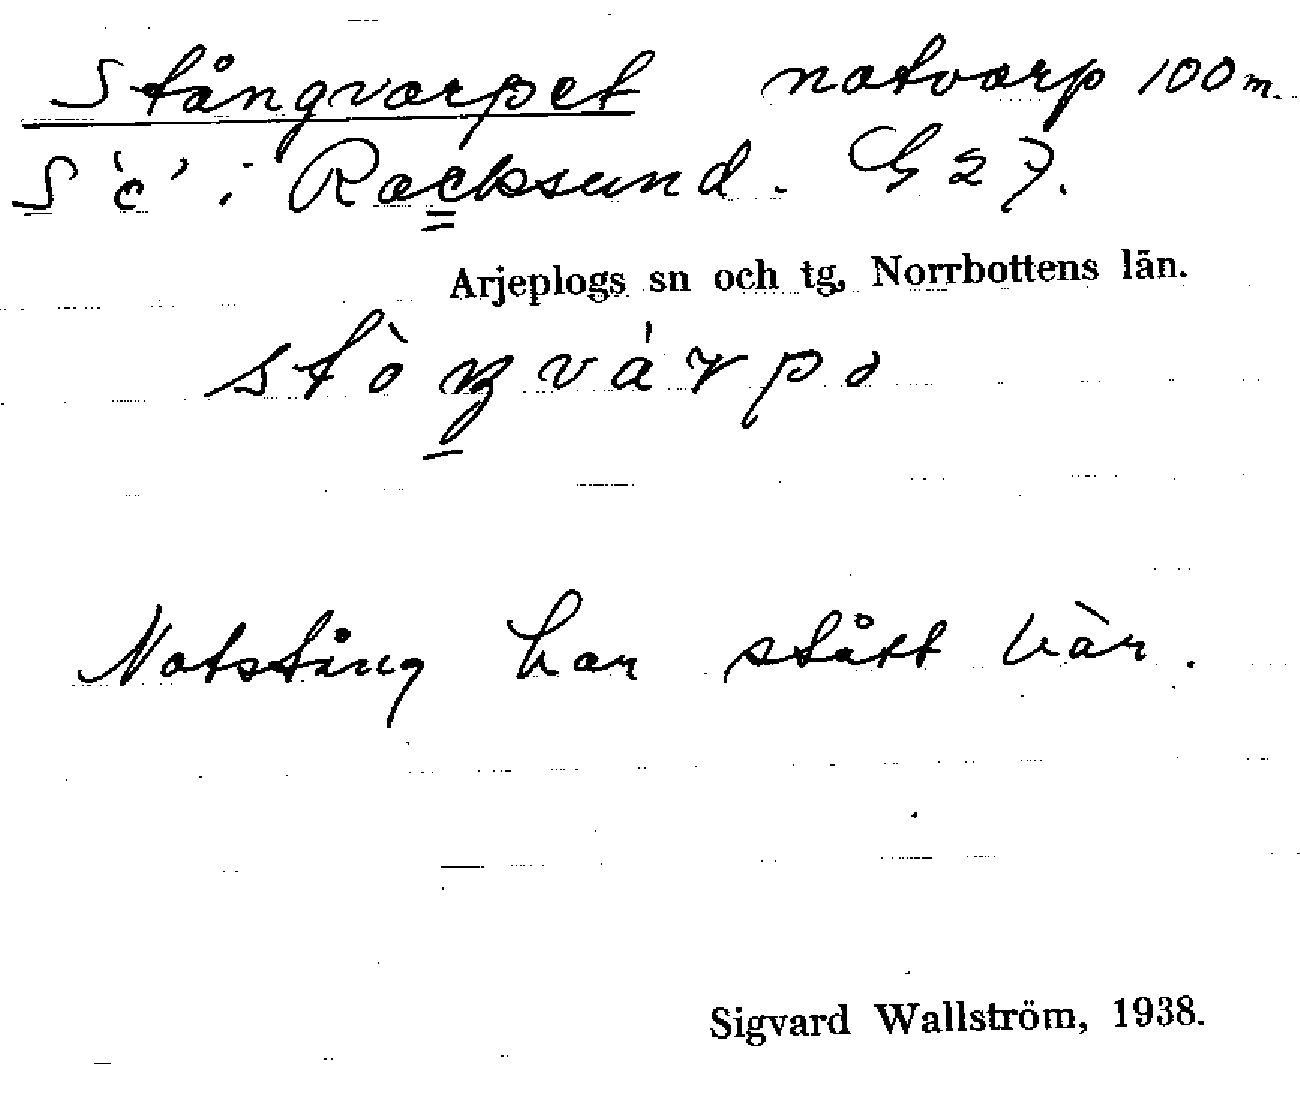 Stångvarpet notvarp 100 m.
S 'c' i Racksund. G 27.
Arjeplogs sn och tg, Norrbottens län.
stò̀ŋvárpə
Notstång har stått här.
Sigvard Wallström, 1938.